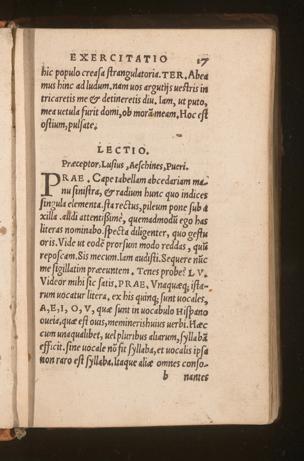 EXERCITATIO 17
hic populo creaſa ſtrangulatoria. TER. Abea
mus hinc ad ludum. nam uos argutijs ueſtris in
tricaretis me & detineretis diu. Iam, ut puto,
mea uetula furit domi, ob morā meam. Hoc eſt
oſtium, pulſate.
LECTIO.
Præceptor, Luſius, Aeſchines, Pueri.
PRAE. Cape tabellam abcedariam ma=
nu ſiniſtra, & radium hunc quo indices
ſingula elementa. ſta rectus, pileum pone ſub a
xilla. audi attentißimè, quemadmodū ego has
literas nominabo. ſpecta diligenter, quo geſtu
oris. Vide ut eodē prorſum modo reddas, quū
repoſcam. Sis mecum. Iam audiſti. Sequere nūc
me ſigillatim præeuntem. Tenes probe? LV.
Videor mihi ſic ſatis. PRAE. Vnaquæq; iſta-
rum uocatur litera, ex his quinq; ſunt uocales,
A, E, I, O, V, quæ ſunt in uocabulo Hiſpano
oueia, quæ eſt ouis, memineris huius uerbi. Hæc
cum unaqualibet, uel pluribus aliarum, ſyllabā
efficit. ſine uocale nō fit ſyllaba, et uocalis ipſa
non raro eſt ſyllaba. Itaque aliæ omnes conſo-
b nantes